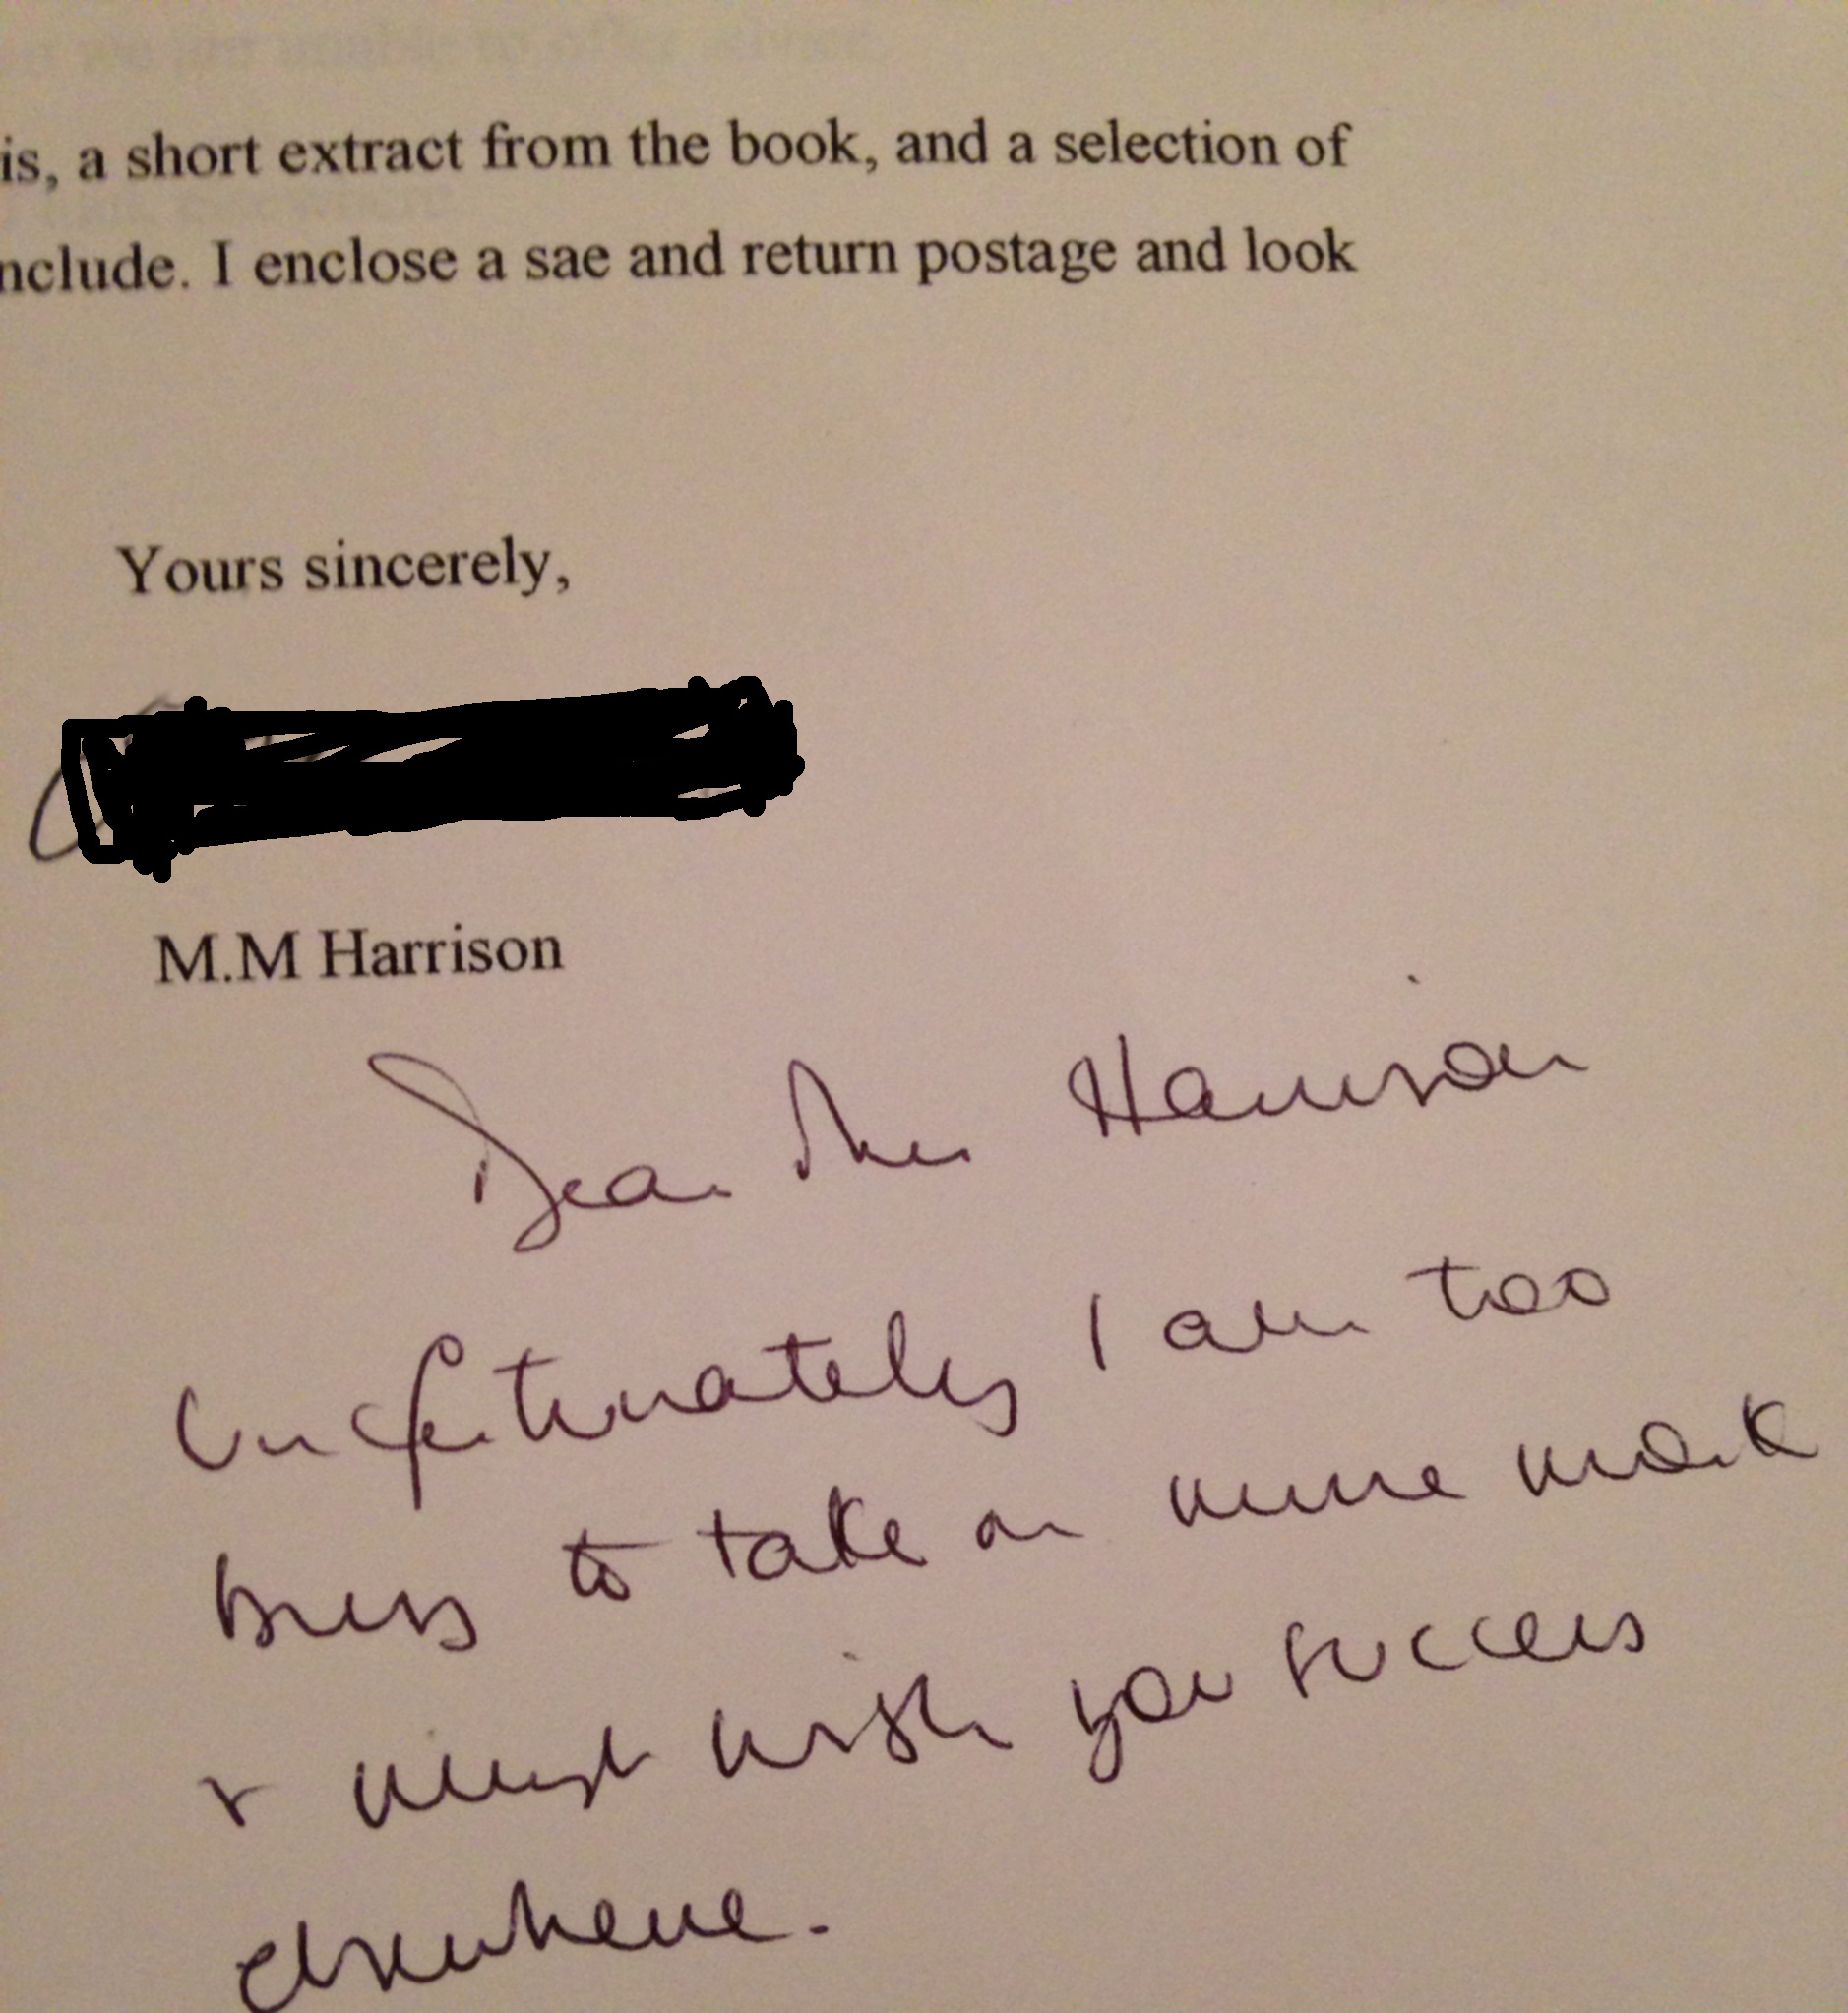 we are unable to offer advice
is, a short extract from the book, and a selection of
nclude. I enclose a sae and return postage and look
Yours sincerely,
M.M Harrison
Dear Harrison
Unfortunately I am too
busy to take on more work
& must wish you success
elsewhere.